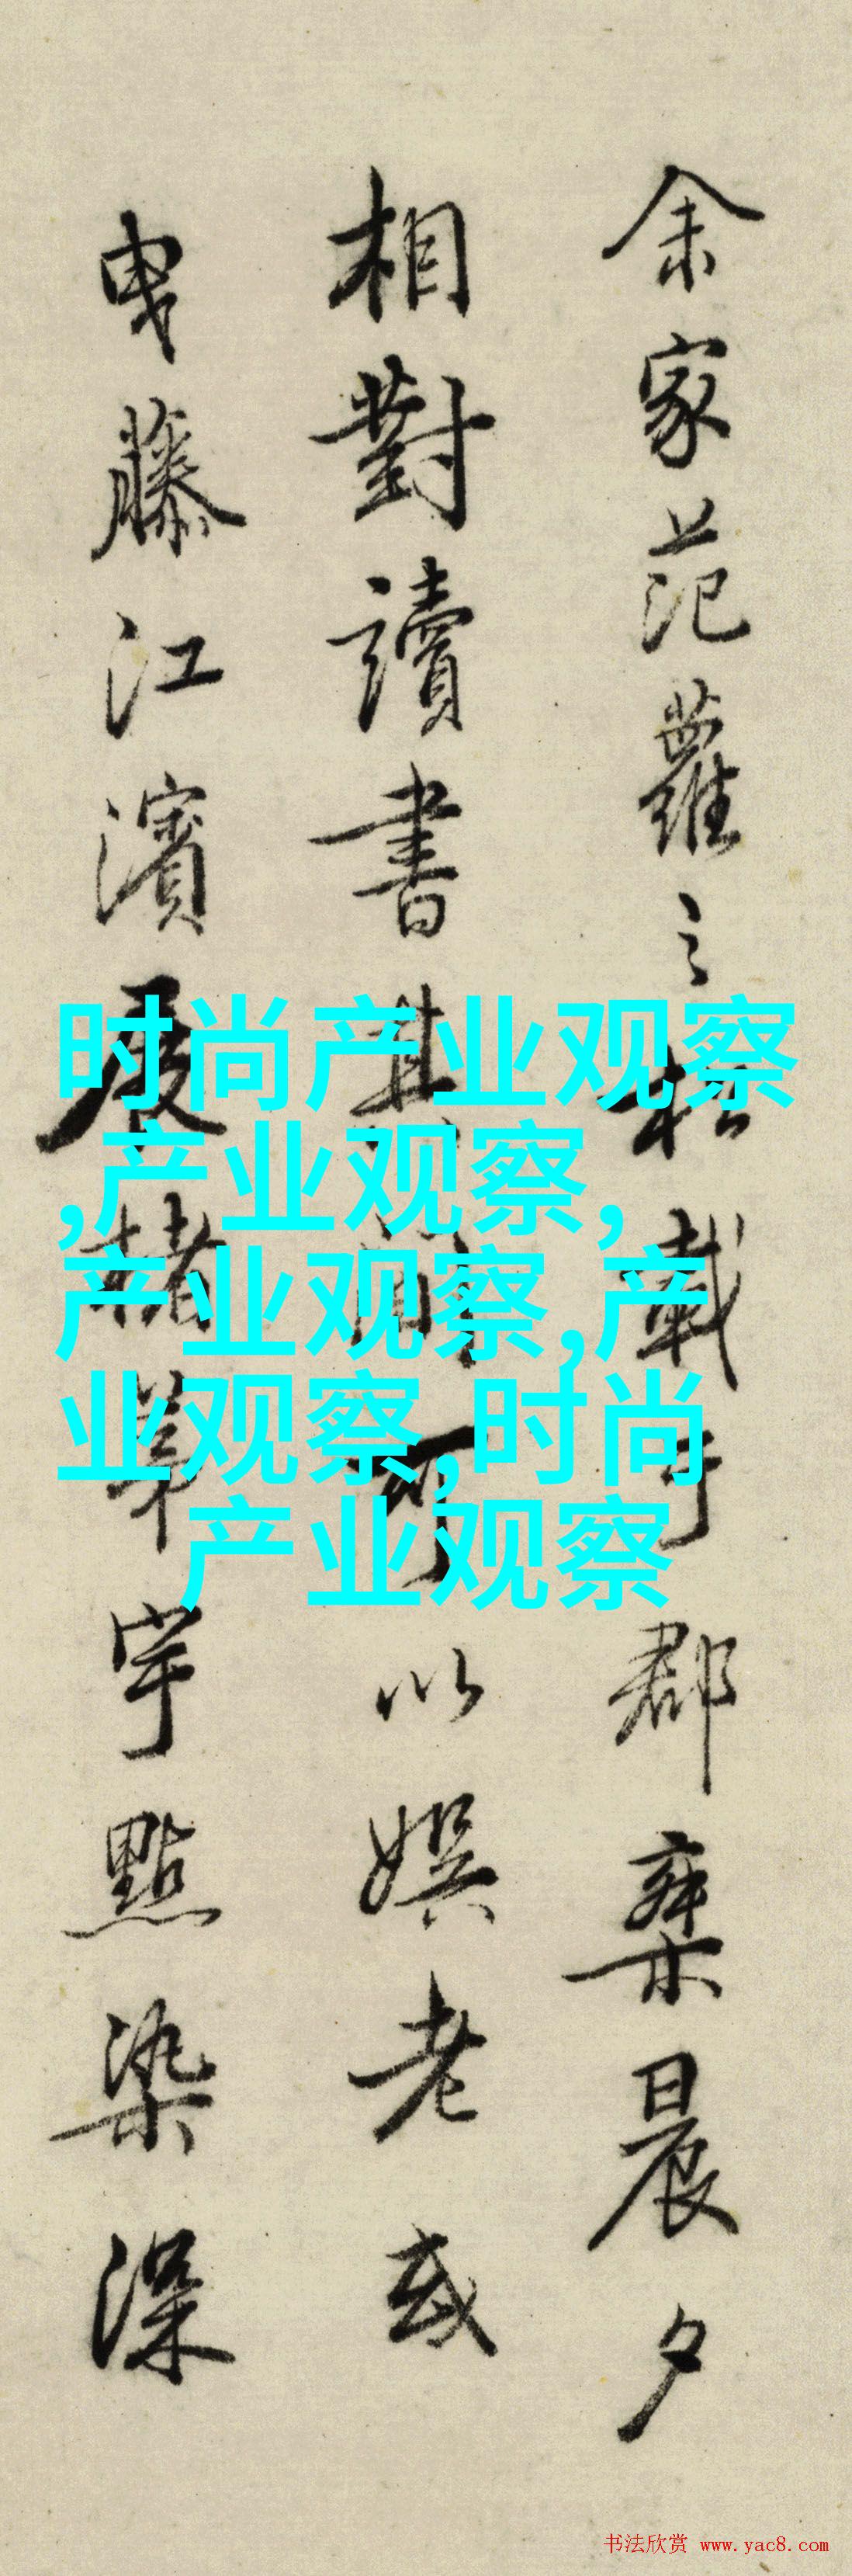 余家范蘿之
載于郡乘晨夕
相對讀書其
可以娱老或
曳藤江濱展楮
筆字點染深
时尚产业观察
,产业观察,
产业观察,产
业观察,时尚
产业观察
书法欣赏 www.yac8.com